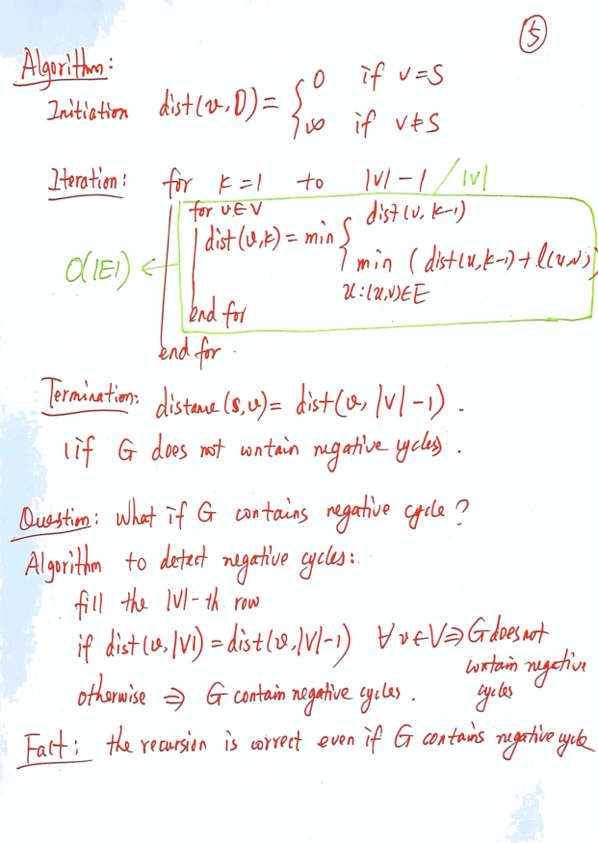 ⑤
Algorithm:
Initiation dist(v,0) = { 0 if v=S
∞ if v≠S
Iteration: for k=1 to |V|-1 / |V|
for v∈V
dist(v,k) = min { dist(v,k-1)
min (dist(u,k-1)+l(u,v))
u:(u,v)∈E
O(|E|) ←
end for
end for.
Termination: distance(s,v) = dist(v,|V|-1).
(if G does not contain negative cycles).
Question: What if G contains negative cycle?
Algorithm to detect negative cycles:
fill the |V|-th row
if dist(v,|V|) = dist(v,|V|-1) ∀v∈V ⇒ G does not
contain negative
cycles
otherwise ⇒ G contain negative cycles.
Fact: the recursion is correct even if G contains negative cycle